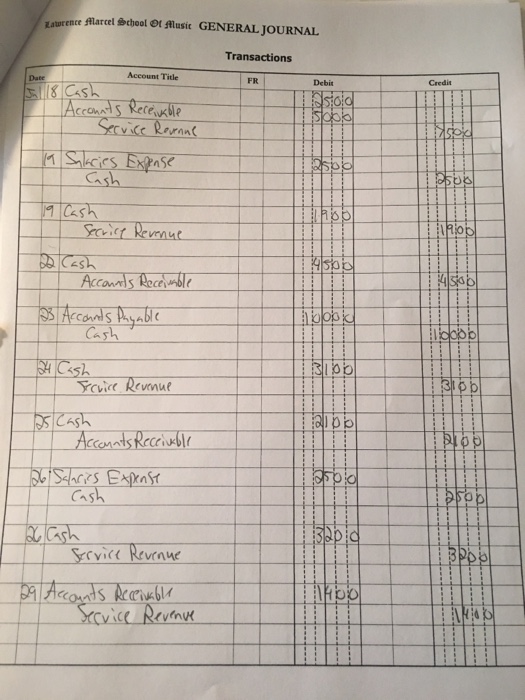 Lawrence Marcel School Of Music GENERAL JOURNAL
Transactions
Date Account Title FR Debit Credit
18 Cash 2500
Accounts Receivable 5000
Service Revenue 7500
19 Salaries Expense 2500
Cash 2500
19 Cash 1900
Service Revenue 1900
22 Cash 4500
Accounts Receivable 4500
23 Accounts Payable 10000
Cash 10000
24 Cash 3100
Service Revenue 3100
25 Cash 2100
Accounts Receivable 2100
26 Salaries Expense 2500
Cash 2500
26 Cash 3200
Service Revenue 3200
29 Accounts Receivable 1400
Service Revenue 1400